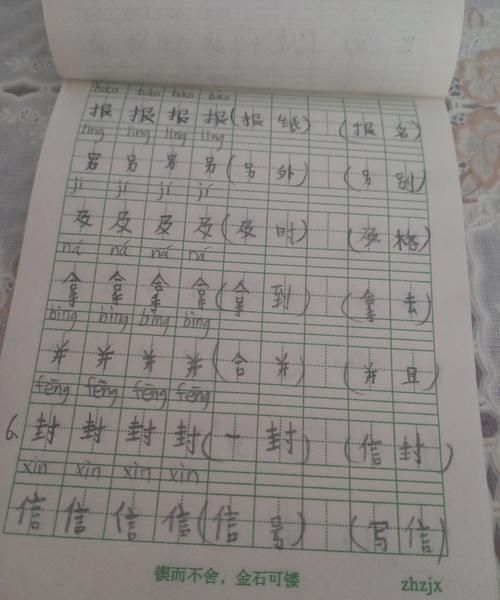 bào bào bào bào
报 报 报 报 (报 纸) (报 名)
lìng lìng lìng lìng
另 另 另 另 (另 外) (另 别)
jí jí jí jí
及 及 及 及 (及 时) (及 格)
ná ná ná ná
拿 拿 拿 拿 (拿 到) (拿 去)
bìng bìng bìng bìng
并 并 并 并 (合 并) (并 且)
fēng fēng fēng fēng
6、封 封 封 封 (一 封) (信 封)
xìn xìn xìn xìn
信 信 信 信 (信 号) (写 信)
锲而不舍，金石可镂 zhzjx